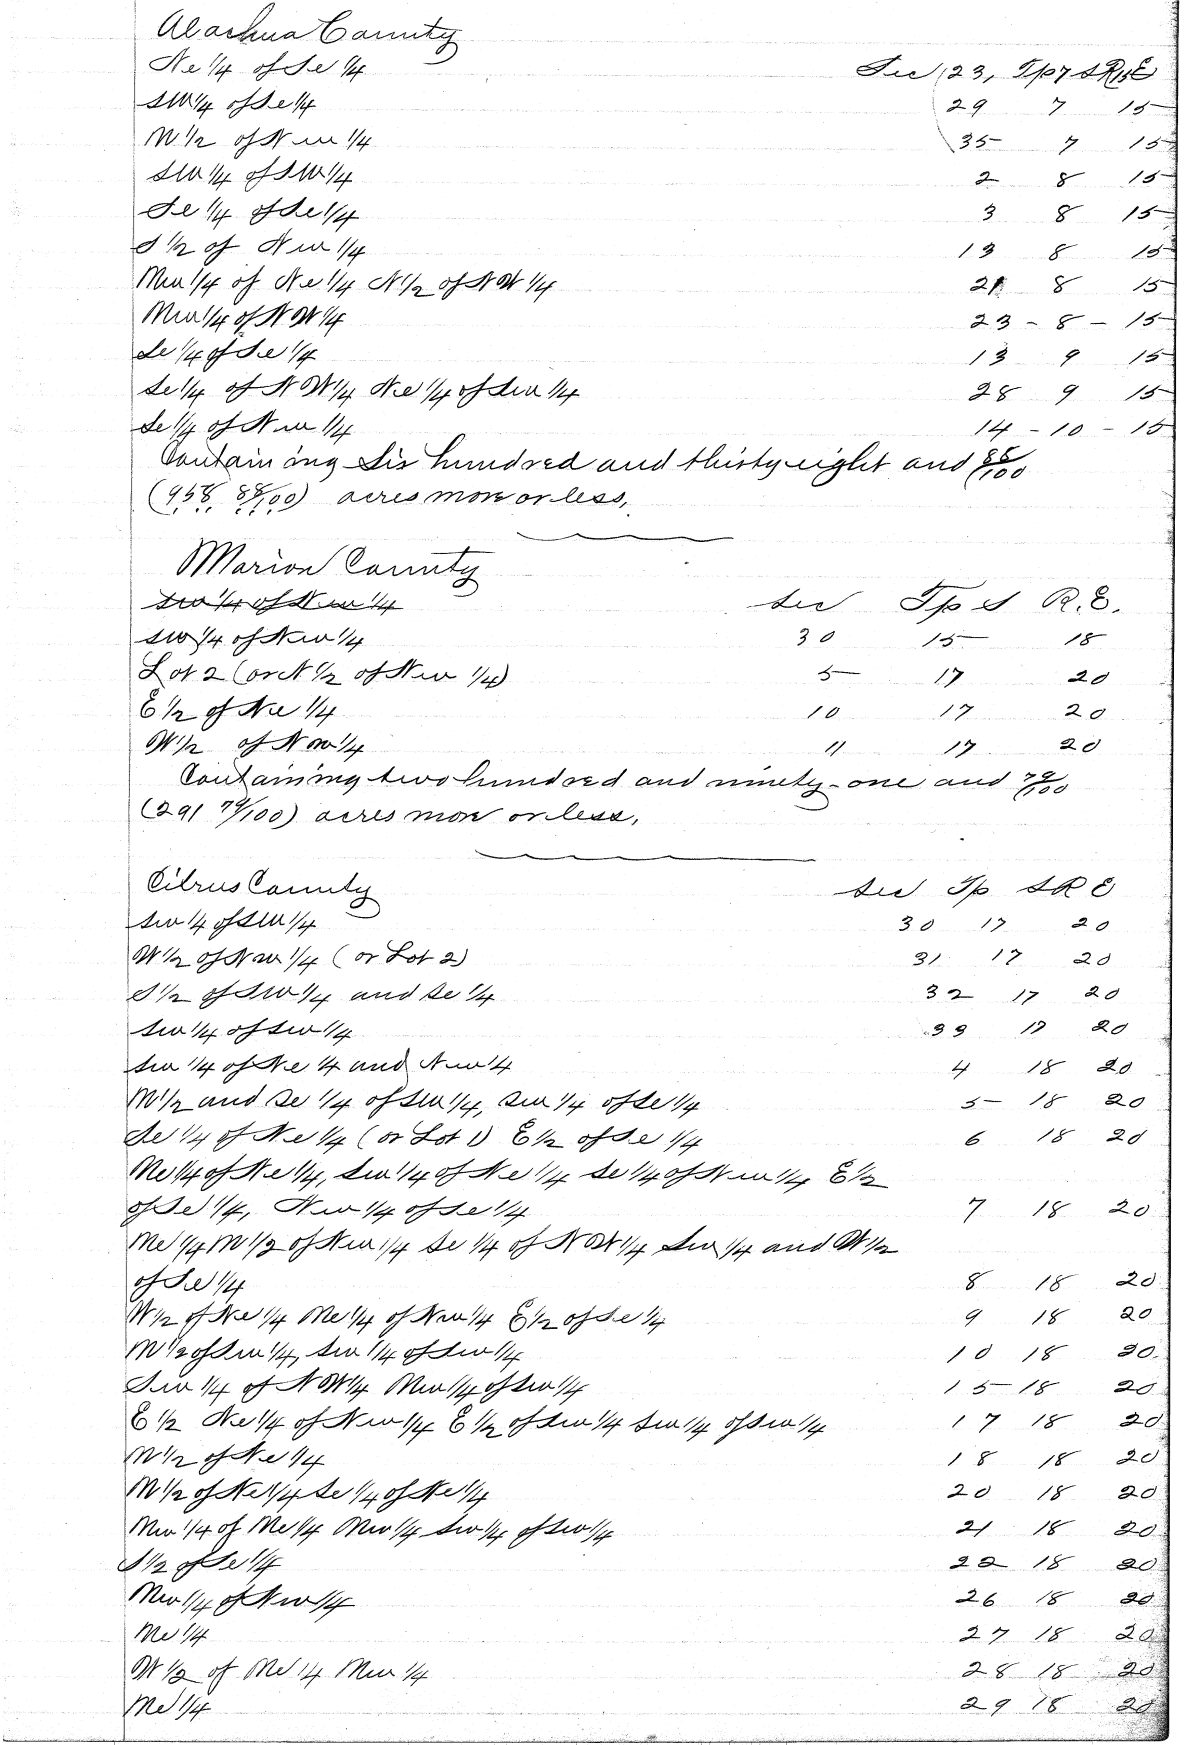 Alachua County
Ne 1/4 of Se 1/4 Sec 23, Tp 7 S R 15 E
SW 1/4 of Se 1/4 29 7 15
N 1/2 of Nw 1/4 35 7 15
SW 1/4 of SW 1/4 2 8 15
Se 1/4 of Se 1/4 3 8 15
S 1/2 of Nw 1/4 13 8 15
Nw 1/4 of Ne 1/4 N 1/2 of NW 1/4 21 8 15
Nw 1/4 of NW 1/4 23 - 8 - 15
Se 1/4 of Se 1/4 13 9 15
Se 1/4 of NW 1/4 Ne 1/4 of Sw 1/4 28 9 15
Se 1/4 of Nw 1/4 14 - 10 - 15
Containing Six hundred and thirty eight and 88/100
(958 88/100) acres more or less,
Marion County
Sw 1/4 of Nw 1/4 Sec Tp S R.E.
SW 1/4 of Nw 1/4 30 15 18
Lot 2 (or N 1/2 of Nw 1/4) 5 17 20
E 1/2 of Ne 1/4 10 17 20
W 1/2 of Nw 1/4 11 17 20
Containing two hundred and ninety-one and 79/100
(291 79/100) acres more or less,
Citrus County Sec Tp S R E
Sw 1/4 of SW 1/4 30 17 20
W 1/2 of Nw 1/4 (or Lot 2) 31 17 20
S 1/2 of SW 1/4 and Se 1/4 32 17 20
Sw 1/4 of Sw 1/4 33 17 20
Sw 1/4 of Ne 1/4 and Nw 1/4 4 18 20
N 1/2 and Se 1/4 of Sw 1/4, Sw 1/4 of Se 1/4 5 - 18 20
Se 1/4 of Ne 1/4 (or Lot 1) E 1/2 of Se 1/4 6 18 20
Ne 1/4 of Ne 1/4, Sw 1/4 of Ne 1/4 Se 1/4 of Nw 1/4 E 1/2
of Se 1/4, Nw 1/4 of Se 1/4 7 18 20
Ne 1/4 N 1/2 of Nw 1/4 Se 1/4 of NW 1/4 Sw 1/4 and W 1/2
of Se 1/4 8 18 20
W 1/2 of Ne 1/4 Ne 1/4 of Nw 1/4 E 1/2 of Se 1/4 9 18 20
N 1/2 of Sw 1/4, Sw 1/4 of Sw 1/4 10 18 20
Sw 1/4 of NW 1/4 Nw 1/4 of Sw 1/4 15 - 18 20
E 1/2 Ne 1/4 of Nw 1/4 E 1/2 of Sw 1/4 Sw 1/4 of Sw 1/4 17 18 20
N 1/2 of Ne 1/4 18 18 20
N 1/2 of Ne 1/4 Se 1/4 of Ne 1/4 20 18 20
Nw 1/4 of Ne 1/4 Nw 1/4 Sw 1/4 of Sw 1/4 21 18 20
S 1/2 of Se 1/4 22 18 20
Nw 1/4 of Nw 1/4 26 18 20
Ne 1/4 27 18 20
W 1/2 of Ne 1/4 Nw 1/4 28 18 20
Ne 1/4 29 18 20